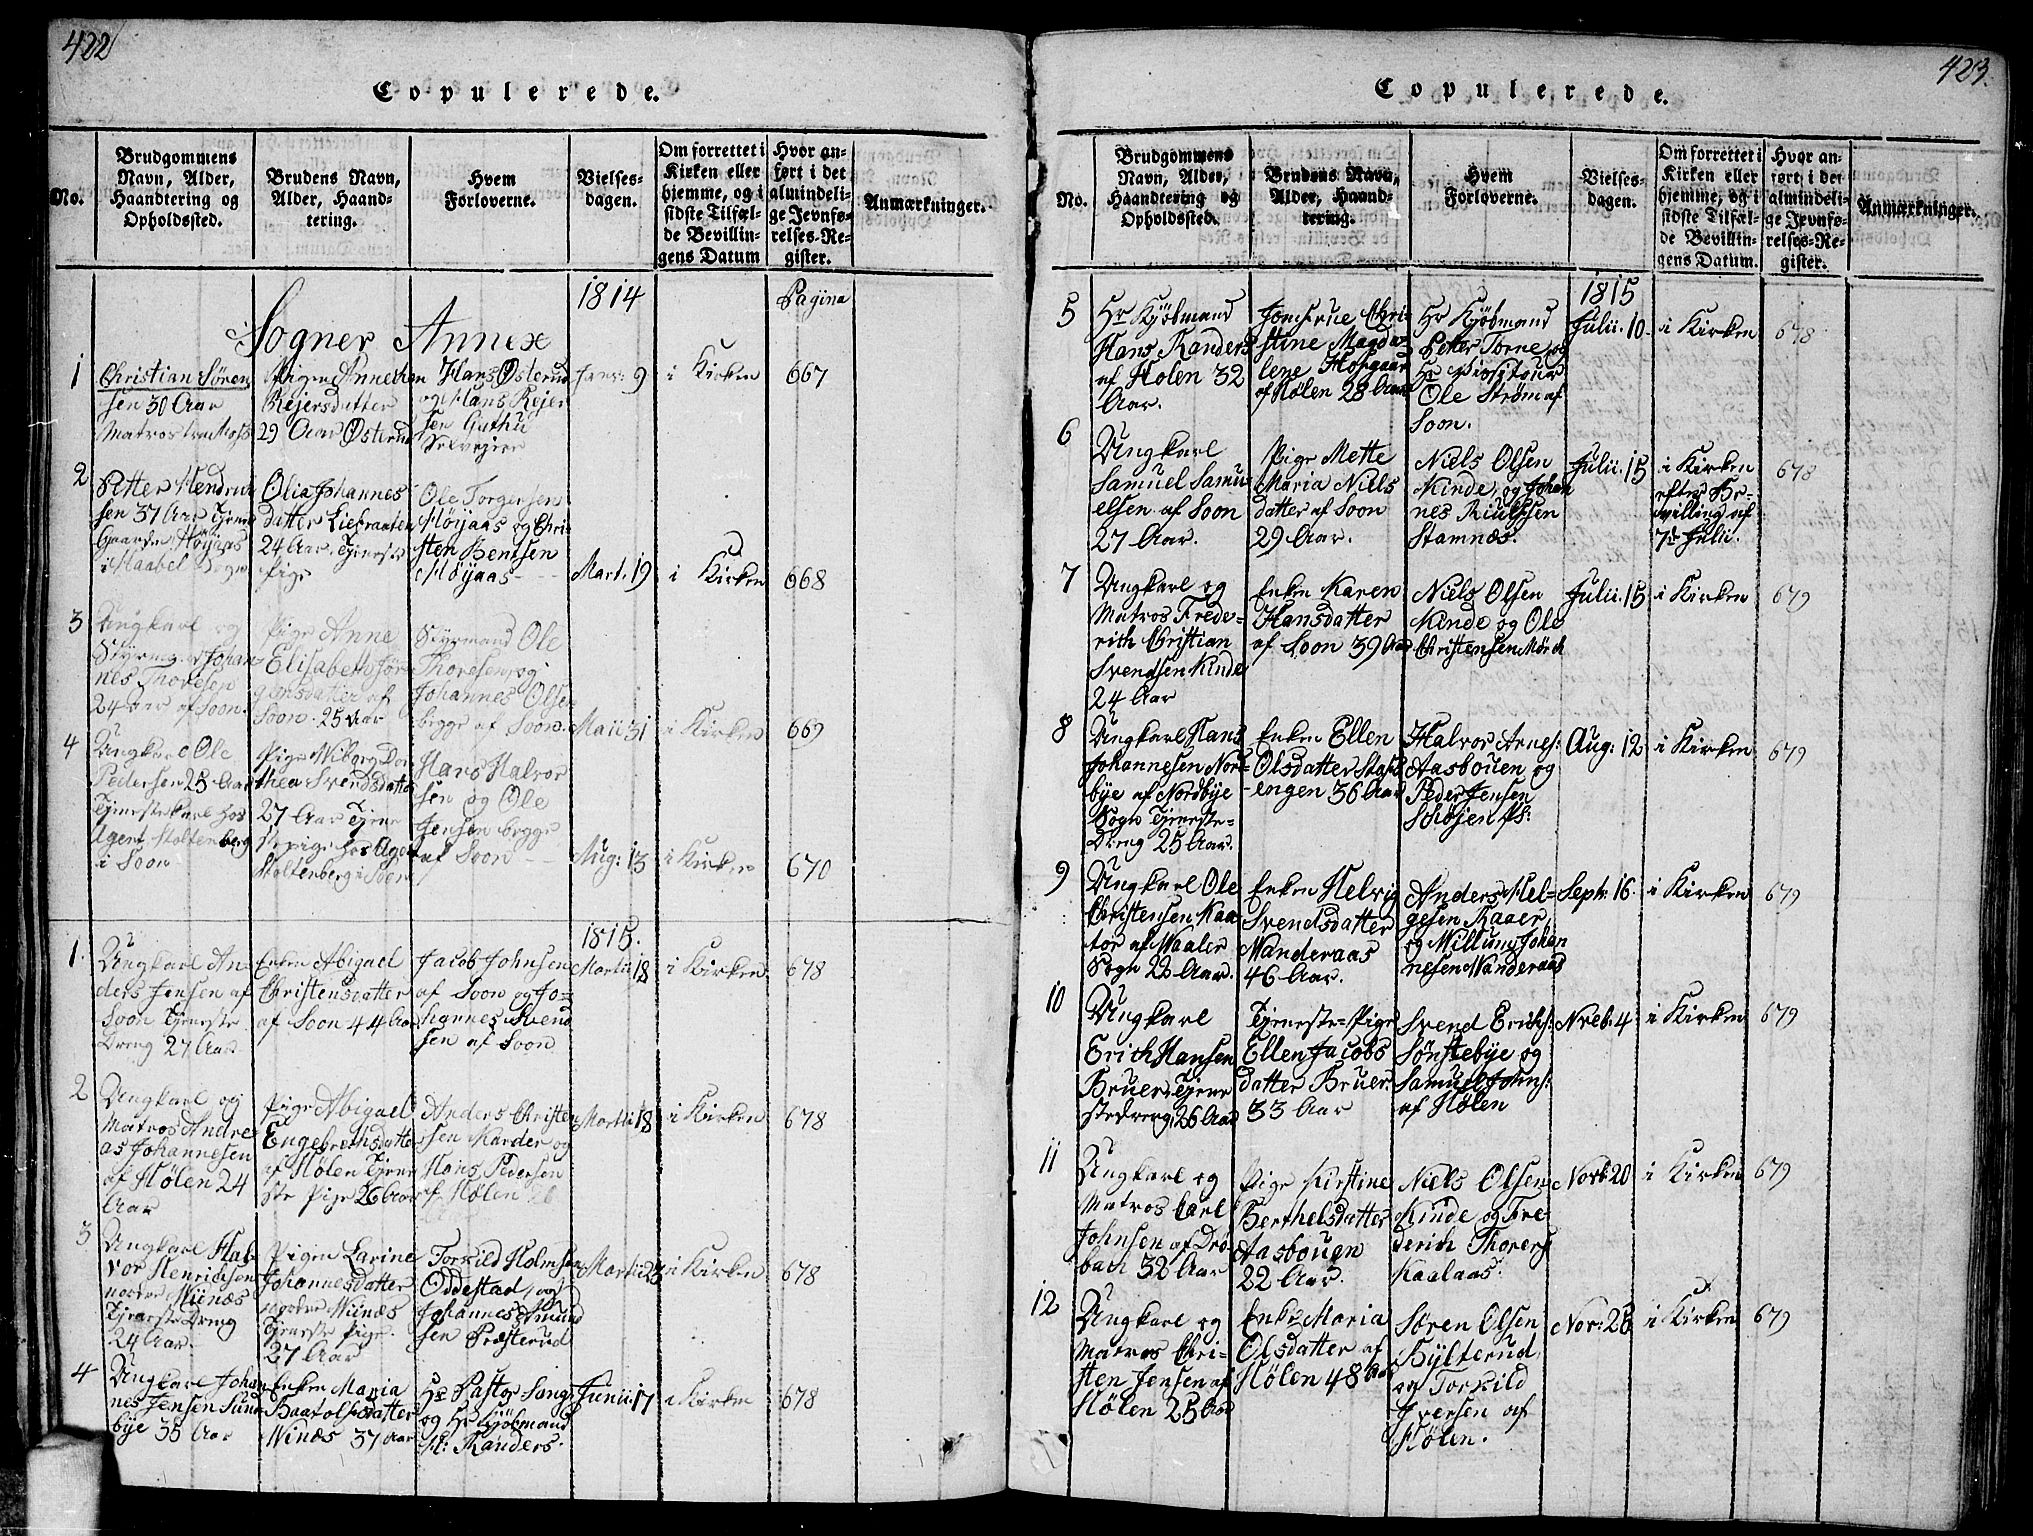 422
Copulerede.
No.
Brudgommens
Navn, Alder,
Haandtering og
Opholdssted.
Brudens Navn,
Alder, Haand-
tering.
Hvem
Forloverne.
Vielses-
dagen.
Om forrettet i
Kirken eller
hjemme, og i
sidste Tilfæl-
de Bevillin-
gens Datum
Hvor an-
ført i det
almindeli-
ge Jevnfø-
relses-Re-
gister.
Anmærkninger.
1814
Pagina
Sogner Annex
1
Christian Sören
sen 30 Aar
Matros
Pigen Anne
Rejersdatter
29 Aar Østerud
Hans Østerud
og Hans Rejer
sen Guthu
Selvejer
Janr: 9
i Kirken
667
2
Petter Hendrich
sen 37 Aar
Gaarden Höijaas
i Haabel Sogn
Olia Johannes
datter
24 Aar, Tjeneste
Pige
Ole Torgersen
Höijaas og Chri-
sten Bentsen
Höijaas
Mart. 19
i Kirken
668
3
Ungkarl og
Styrmand Johan-
nes Thoresen
24 Aar af Soon.
Pige Anne
Elisabeth Jör-
gensdatter af
Soon. 25 Aar
Styrmand Ole
Thoresen og
Johannes Olsen
begge af Soon.
Maii 31
i Kirken
669
4
Ungkarl Ole
Pedersen 25 Aar
Tjenestekarl hos
Agent Stoltenberg
i Soon
Pige Wiborg Dor
thea Svendsdatter
27 Aar Tjene
stepige hos Agent
Stoltenberg i Soon
Hans Halvor
sen og Ole
Jensen begge
af Soon
Aug: 13
i Kirken
670
1815.
1.
Ungkarl An-
ders Jensen af
Soon Tjeneste
Dreng 27 Aar
Enken Abigael
Christensdatter
af Soon 44 Aar
Jacob Johnsen
af Soon og Jo-
hannes Svend
sen af Soon
Martii 18
i Kirken
678
2
Ungkarl og
Matros Andre-
as Johannesen
af Hölen 24
Aar
Pige Abigael
Engebrethsdatter
af Hölen Tjene
ste Pige 26 Aar
Anders Christen
sen Karder og
Hans Pedersen
af Hölen
Martii 18
i Kirken
678
3
Ungkarl Hal-
vor Henrichsen
nordre Wiinæs
Tjeneste Dreng
24 Aar.
Pigen Larine
Johannesdatter
nordre Wiinæs
Tjeneste Pige.
27 Aar
Torkild Holmsen
Oddestad, og
Johannes Amund
sen Præsterud
Martii 23
i Kirken
678
4
Ungkarl Johan
nes Jensen Sund
bye 35 Aar
Enken Maria
Baarolsdatter
Winæs 37 Aar
Hr Pastor Lange
og Hr Kjöbmand
H: Randers.
Junii 17
i Kirke
678
423.
Copulerede.
No.
Brudgommens
Navn, Alder,
Haandtering og
Opholdssted.
Brudens Navn,
Alder, Haand-
tering.
Hvem
Forloverne.
Vielses-
dagen.
Om forrettet i
Kirken eller
hjemme, og i
sidste Tilfæl-
de Bevillin-
gens Datum.
Hvor an-
ført i det
almindeli-
ge Jevnfø-
relses-Re-
gister.
Anmærkninger.
1815
5
Hr Kjöbmand
Hans Randers
af Hölen 32
Aar.
Jomfrue Chri-
stine Magda-
lene Hofgaard
af Hölen 28 Aar
Hr Kjöbmand
Petter Torne og
Hr Visiteur
Ole Ström af
Soon.
Julii. 10
i Kirken
678
6
Ungkarl
Samuel Samu
elsen af Soon
27 Aar.
Pige Mette
Maria Niels
datter af Soon
29 Aar.
Niels Olsen
Kinde, og Johan
nes Riulssen
Stamnæs.
Julii. 15
i Kirken
efter Be-
villing af
7de Julii.
678
7
Ungkarl og
Matros Frede-
rich Christian
Svendsen Kinde
24 Aar
Enken Karen
Hansdatter
af Soon 39 Aar
Niels Olsen
Kinde og Ole
Christensen Mörch
Julii. 15
i Kirken
679
8
Ungkarl Hans
Johannesen Nord-
bye af Nordbye
Sogn Tjeneste-
Dreng 25 Aar.
Enken Ellen
Olsdatter Stafs
engen 36 Aar
Halvor Arnes:
Aasbouen og
Peder Jensen
Schöjen Ps:
Aug: 12
i Kirken
679
9
Ungkarl Ole
Christensen Kaa-
tor af Waaler
Sogn 22 Aar.
Enken Helvig
Svendsdatter
Wanderaas
46 Aar.
Anders Hel-
gesen Kaaer,
og Willum Johan
nesen Wanderaas
Septr. 16
i Kirken
679
10
Ungkarl
Erich Hansen
Bruer Tjene
stedreng. 26 Aar
Tjeneste-Pige
Ellen Jacobs
datter Bruer.
33 Aar
Svend Erichs:
Sönstebye og
Samuel Johns:
af Hölen
Nvebr. 4
i Kirken
679
11
Ungkarl og
Matros Carl
Johnsen af Drö-
bach 32 Aar
Pige Kirstine
Berthelsdatter
Aasbouen
22 Aar.
Niels Olsen
Kinde og Fre-
derich Thorers
Kaalaas.
Novbr 20
i Kirken
679
12
Ungkarl og
Matros Chri-
sten Jensen af
Hölen 25 Aar
Enke Maria
Olsdatter af
Hölen 48 Aar
Sören Olsen
Hylterud
og Torkild
Iversen af
Hölen.
Nov: 26
i Kirken
679